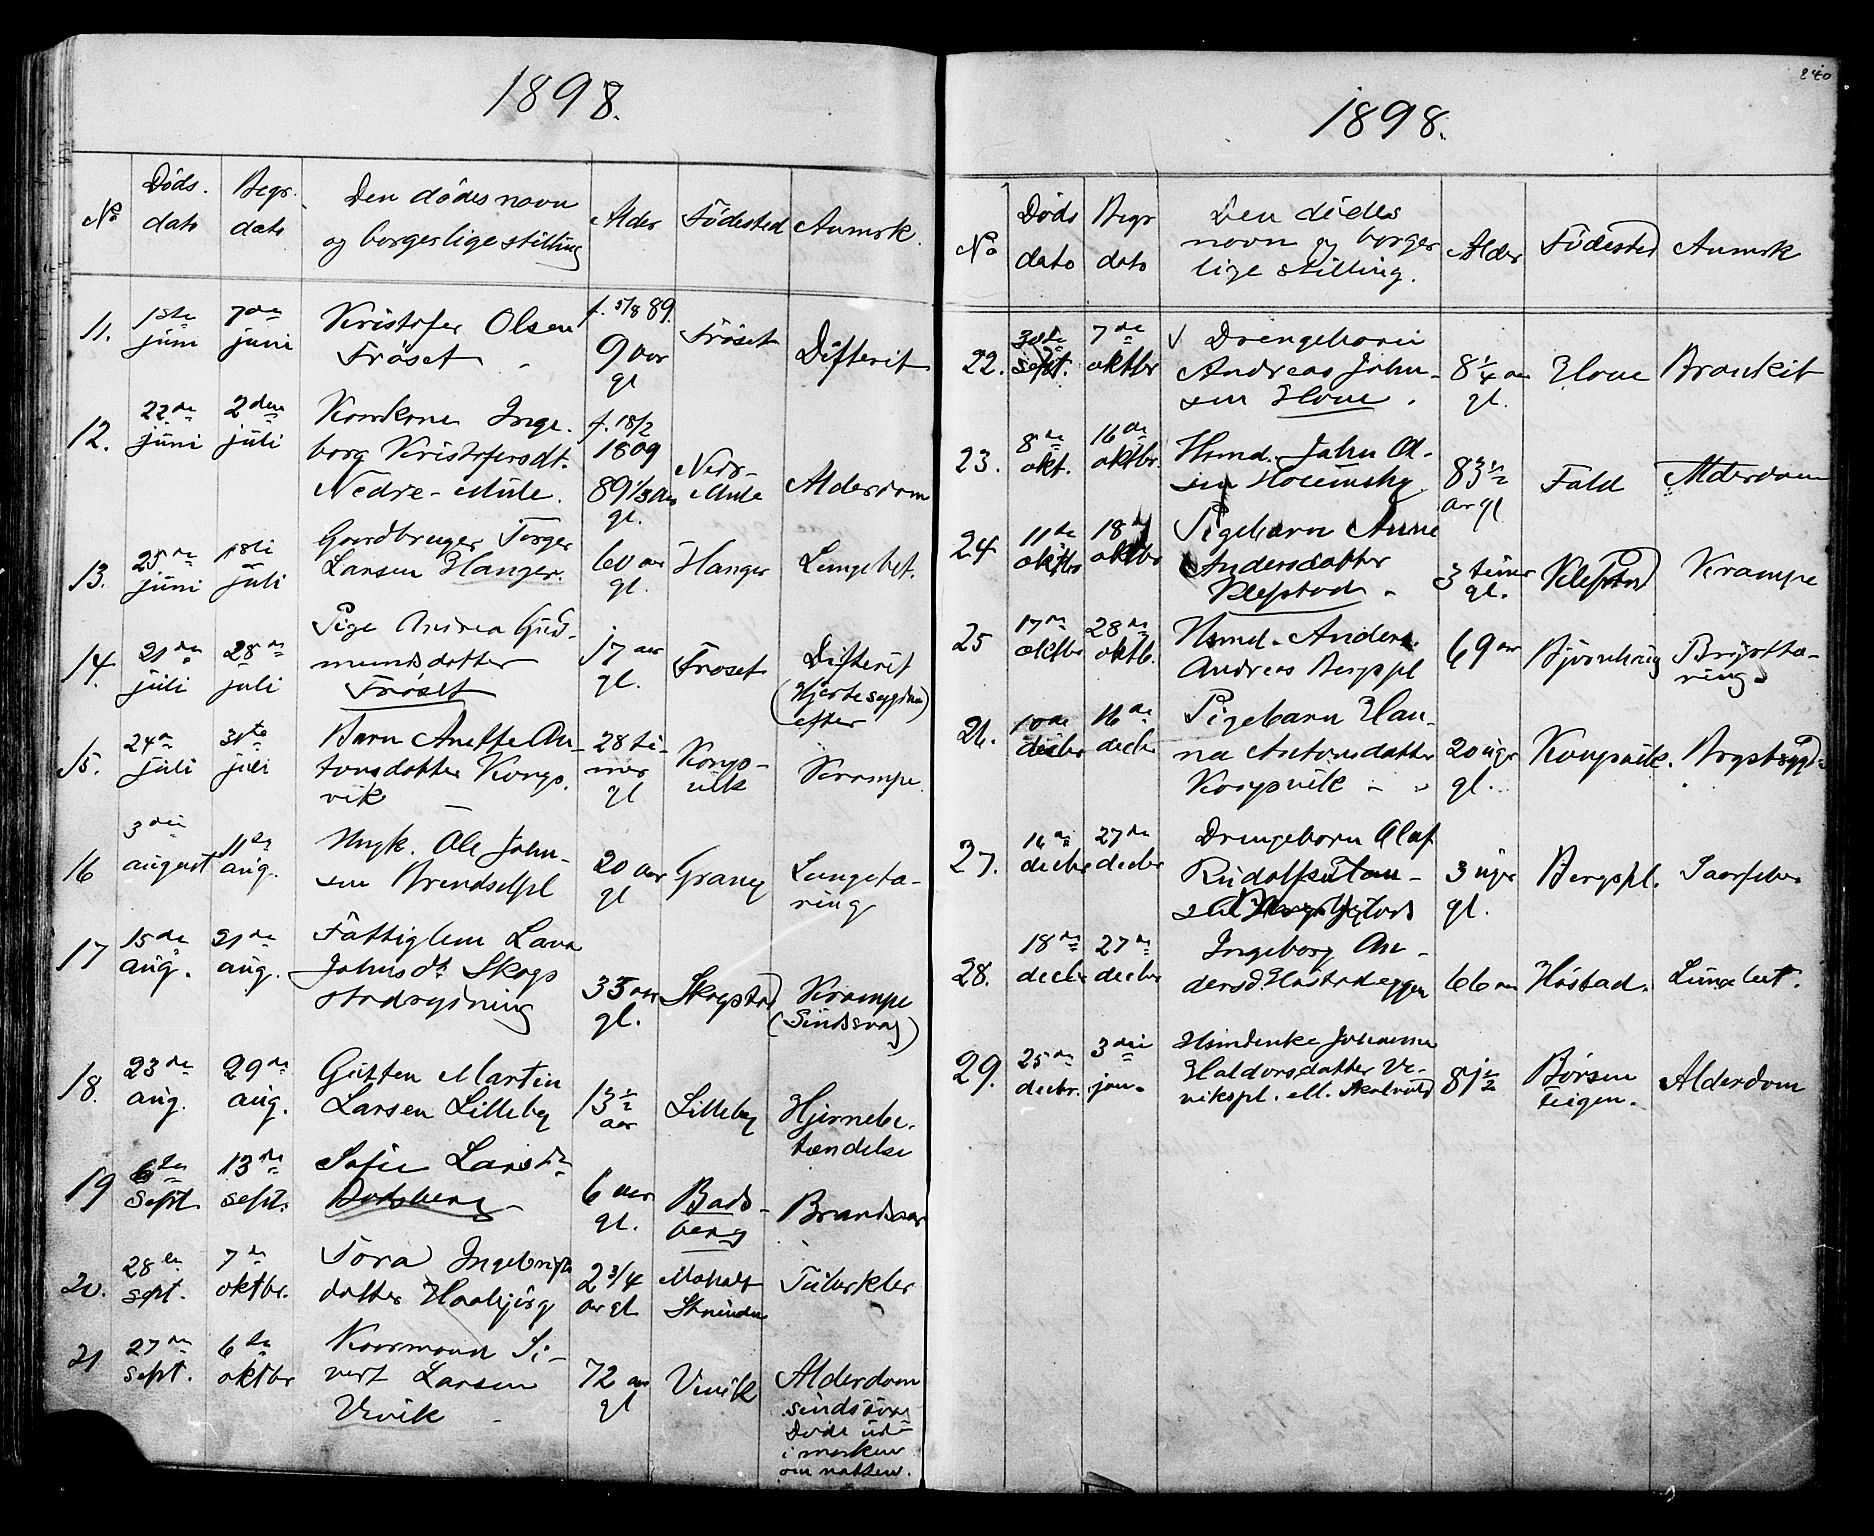 1898.
No
Döds.
dato
Begr.
dato
Den dödes navn
og borgerlige stilling
Alder
Födested
Anmrk.
11.
1ste
juni
7de
juni
Kristofer Olsen
Fröset
f. 5/8 89.
9 aar
gl
Fröset
Difterit
12.
22de
juni
2den
juli
Konkone Inge-
borg Kristofersdt.
Nedre-Mule.
f. 18/2
1809
89 1/3 aar
gl.
Nedr-
Mule
Alderdom
13.
25de
juni
juli
Gaardbruger Torger
Larsen Hanger.
60 aar
gl.
Hanger
Lungebet.
14.
21de
juli
28de
juli
Pige Andrea Gud-
mundsdatter
Fröset
17 aar
gl.
Fröset
Difterit
(Hjertesygdom)
efter
15.
24de
juli
31te
juli
Barn Anette An-
tonsdatter Kongs-
vik
28 ti-
mer
gl
Kongs-
vik
Krampe.
16
3die
august
11te
aug.
Ungk. Ole John-
sen Brendselpl
20 aar
gl
Graney
Lungetæ-
ring
17
15de
aug.
21de
aug.
Fattiglem Lava
Johnsdt. Skogs
stadrydning
35 aar
gl.
Skogstad
Krampe
(Sindssvag)
18.
23de
aug.
29de
aug.
Gutten Martin
Larsen Lilleby
13 1/2
aar
Lilleby
Hjernebe-
tændelse
19
6te
Sept.
13de
sept.
Sofie Larsdtr
Badsberg
6 aar
gl.
Bads-
berg
Brandsaar
20.
28de
sept.
7de
oktbr.
Tora Ingebrigts
datter Haabjörg
2 3/4
aar gl
Moholt
Strinden
Tuberkler
21
27de
sept.
6te
oktbr
Kaarmand Si-
vert Larsen
Vivik
72 aar
gl
Vivik
Alderdom
sindssvag
Döde ude
i marken
om natten.
240
1898.
No
Döds
dato
Begr
dato
Den dödes
navn og borger
lige stilling.
Alder
Födested
Anmrk
22.
30te
sept.
7de
oktbr
√ Drengebarn
Andreas John-
sen Hove.
8 1/4 aar
gl.
Hove
Bronkit
23.
8de
okt.
16de
oktbr.
Hsmd. John O-
sen
83 1/2
aar gl
Fald
Alderdom
24
11te
oktbr
18de
oktbr
Pigebarn Anne
Andersdatter
Klefstad
3 timer
gl.
Klefstad
Krampe
25
17de
oktbr
28de
oktb.
Hsmd. Anders
Andreas Bergspl
69 aar
Brysttæ-
ring
26.
10de
decbr
16de
decbr
Pigebarn Han-
na Antonsdatter
Kongsvik
20 uger
gl.
Kongsvik.
Brystsygd.
27.
16de
decbr
27de
decbr
Drengebarn Olaf
3 uger
gl.
Bergspl.
28.
18de
decbr
27de
decbr
Ingeborg An-
dersd. Höstadeggen
66 aar
Höstad.
29.
25de
decbr.
3die
jan.
Hsmdenke Johanna
Haldorsdatter Ve-
vikspl. ell. Skalvold
81 1/2
Börsen
teigen.
Alderdom